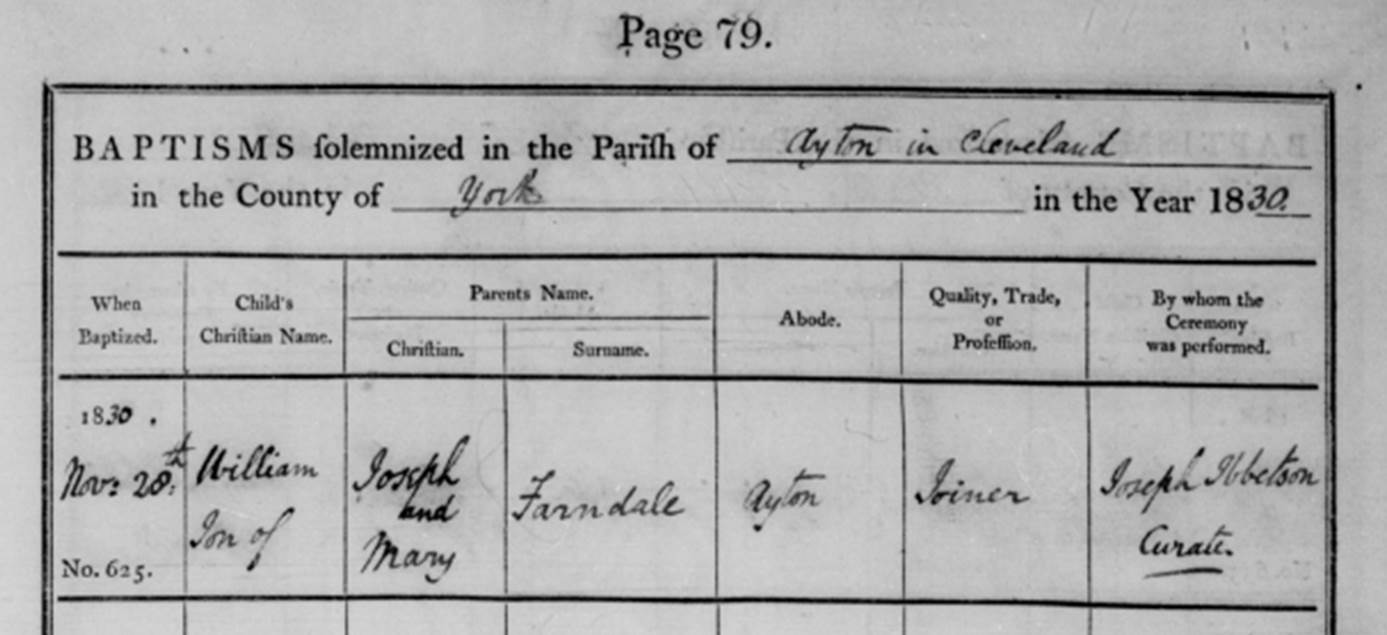 Page 79.
BAPTISMS ſolemnized in the Pariſh of Ayton in Cleveland
in the County of York in the Year 1830.
When Baptized.
Child's Chriſtian Name.
Parents Name.
Chriſtian.
Surname.
Abode.
Quality, Trade, or Profeſſion.
By whom the Ceremony was performed.
1830.
Novr: 28th:
No. 625.
William
Son of
Joseph
and
Mary
Farndale
Ayton
Joiner
Joseph Ibbetson
Curate.